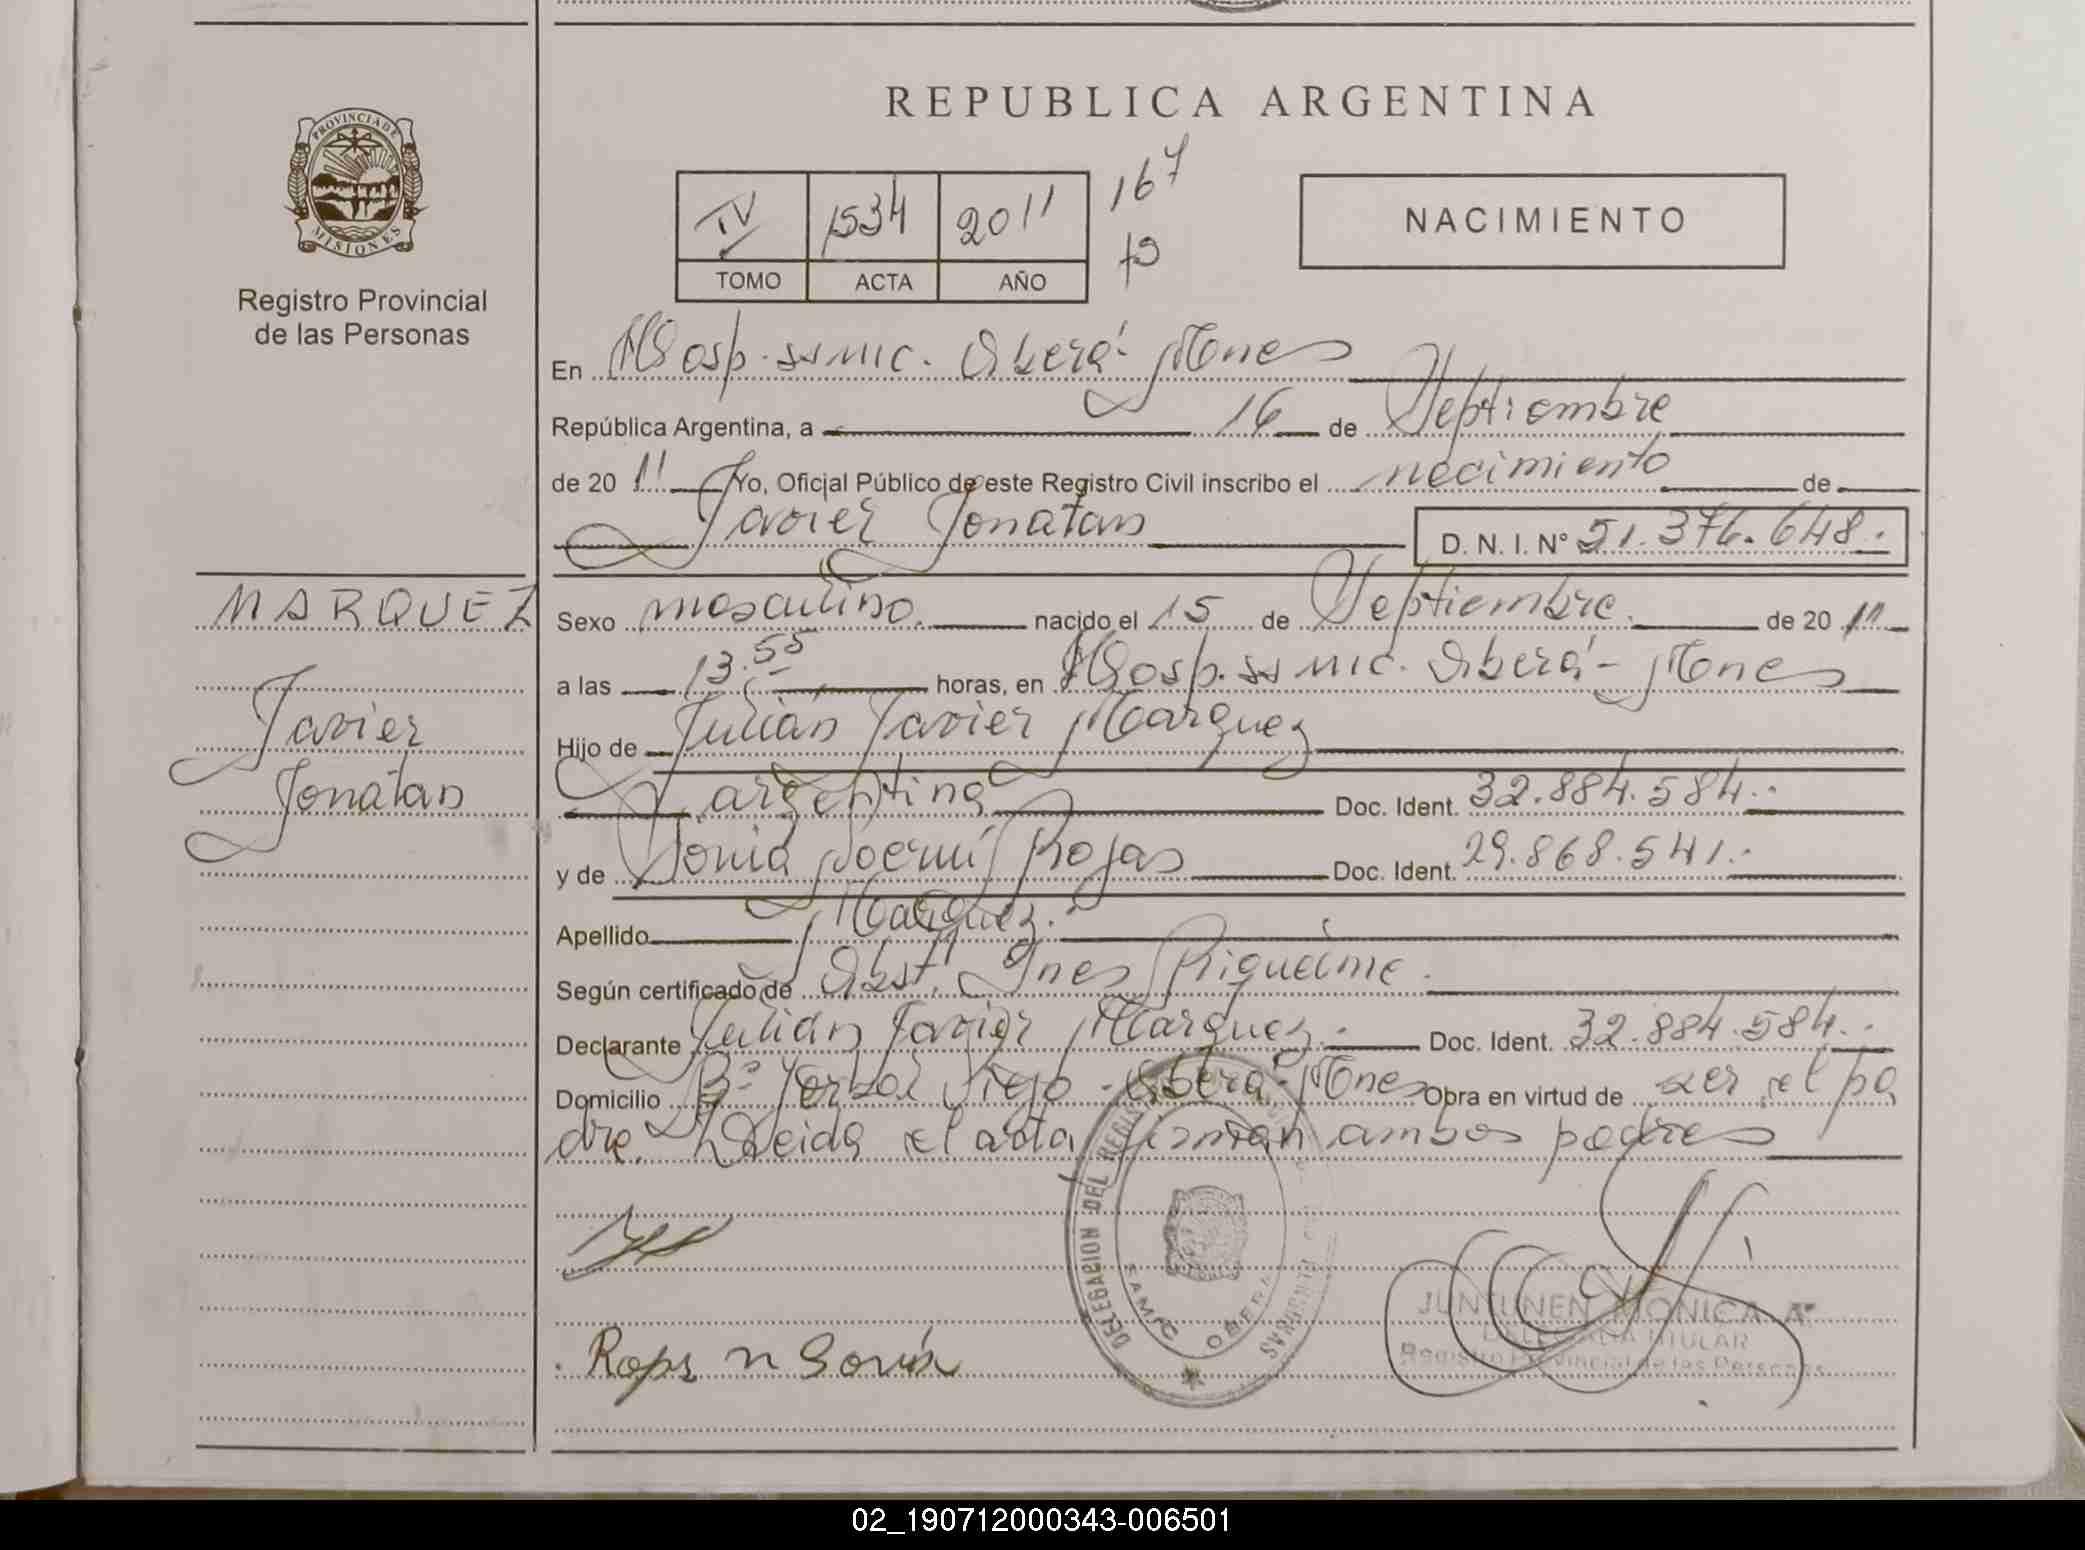 REPUBLICA ARGENTINA
PROVINCIA DE
MISIONES
Registro Provincial
de las Personas
IV 1534 2011 167
TOMO ACTA AÑO
NACIMIENTO
En Hosp. ss mic. Oberá Mnes
República Argentina, a 16 de Septiembre
de 20 11 Yo, Oficial Público de este Registro Civil inscribo el nacimiento de
Javier Jonatan D. N. I. Nº 51.376.648.
MARQUEZ
Javier
Jonatan
Sexo masculino. nacido el 15 de Septiembre. de 20 11
a las 13.55 horas, en Hosp. ss mic. Oberá - Mnes
Hijo de Julián Javier Marquez
argentina Doc. Ident. 32.884.584.
y de Sonia Noemí Rojas Doc. Ident. 29.868.541.
Apellido Marquez.
Según certificado de Obst. Ines Riquelme.
Declarante Julián Javier Marquez. Doc. Ident. 32.884.584.
Domicilio Bº Yerbal Viejo - Oberá - Mnes Obra en virtud de ser el pa
dre. Leida el acta firman ambos padres
DELEGACION DEL REGISTRO
SAMIC OBERA
Rojas N Sonia
JUNTUNEN MONICA Aº
TITULAR
Registro Provincial de las Personas
02_190712000343-006501